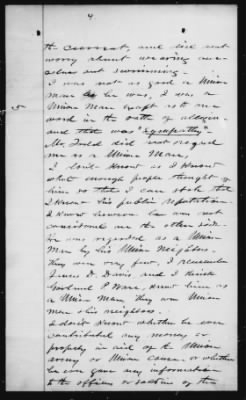 4
the current, and did not
worry about wearing our-
selves out swimming.
I was not as good a Union
man as he was, I was a
Union man except as to one
word in the oath of allegi-
and that was "sympathy"
Mr. Todd did not regard
me as a Union man,
I dont know as I know
what enough people thought of
him so that I can state that
I know his public reputation.
I know however he was not
considered on the other side.
He was regarded as a Union
man by his Union neighbors.
They were very few. I remember
James D. Davis and I think
P. Ware, knew him as
a Union man, they were Union
men & his neighbors.
I don't know whether he ever
contributed any money or
property in aid of the Union
army or Union cause, or whether
he ever gave any information
to the officers or soldiers of the